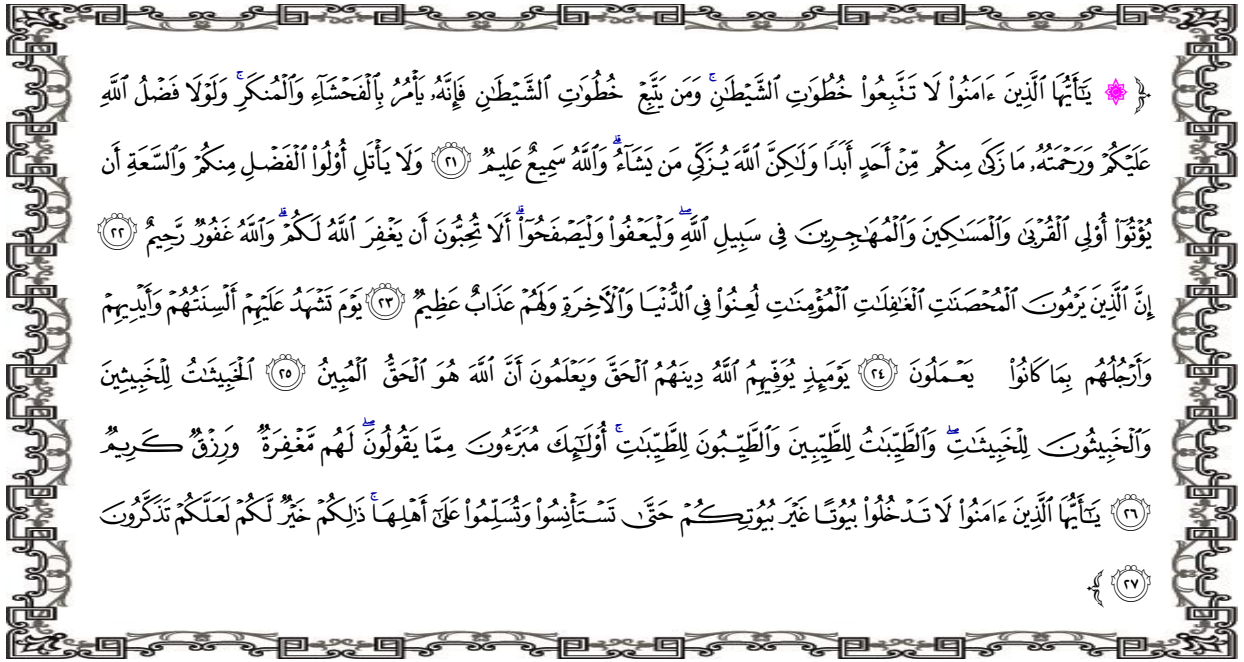 ﴿ ۞ يَٰٓأَيُّهَا ٱلَّذِينَ ءَامَنُواْ لَا تَتَّبِعُواْ خُطُوَٰتِ ٱلشَّيۡطَٰنِۚ وَمَن يَتَّبِعۡ خُطُوَٰتِ ٱلشَّيۡطَٰنِ فَإِنَّهُۥ يَأۡمُرُ بِٱلۡفَحۡشَآءِ وَٱلۡمُنكَرِۚ وَلَوۡلَا فَضۡلُ ٱللَّهِ
عَلَيۡكُمۡ وَرَحۡمَتُهُۥ مَا زَكَىٰ مِنكُم مِّنۡ أَحَدٍ أَبَدٗا وَلَٰكِنَّ ٱللَّهَ يُزَكِّي مَن يَشَآءُۗ وَٱللَّهُ سَمِيعٌ عَلِيمٞ ٢١ وَلَا يَأۡتَلِ أُوْلُواْ ٱلۡفَضۡلِ مِنكُمۡ وَٱلسَّعَةِ أَن
يُؤۡتُوٓاْ أُوْلِي ٱلۡقُرۡبَىٰ وَٱلۡمَسَٰكِينَ وَٱلۡمُهَٰجِرِينَ فِي سَبِيلِ ٱللَّهِۖ وَلۡيَعۡفُواْ وَلۡيَصۡفَحُوٓاْۗ أَلَا تُحِبُّونَ أَن يَغۡفِرَ ٱللَّهُ لَكُمۡۗ وَٱللَّهُ غَفُورٞ رَّحِيمٌ ٢٢
إِنَّ ٱلَّذِينَ يَرۡمُونَ ٱلۡمُحۡصَنَٰتِ ٱلۡغَٰفِلَٰتِ ٱلۡمُؤۡمِنَٰتِ لُعِنُواْ فِي ٱلدُّنۡيَا وَٱلۡأٓخِرَةِ وَلَهُمۡ عَذَابٌ عَظِيمٞ ٢٣ يَوۡمَ تَشۡهَدُ عَلَيۡهِمۡ أَلۡسِنَتُهُمۡ وَأَيۡدِيهِمۡ
وَأَرۡجُلُهُم بِمَا كَانُواْ يَعۡمَلُونَ ٢٤ يَوۡمَئِذٖ يُوَفِّيهِمُ ٱللَّهُ دِينَهُمُ ٱلۡحَقَّ وَيَعۡلَمُونَ أَنَّ ٱللَّهَ هُوَ ٱلۡحَقُّ ٱلۡمُبِينُ ٢٥ ٱلۡخَبِيثَٰتُ لِلۡخَبِيثِينَ
وَٱلۡخَبِيثُونَ لِلۡخَبِيثَٰتِۖ وَٱلطَّيِّبَٰتُ لِلطَّيِّبِينَ وَٱلطَّيِّبُونَ لِلطَّيِّبَٰتِۚ أُوْلَٰٓئِكَ مُبَرَّءُونَ مِمَّا يَقُولُونَۖ لَهُم مَّغۡفِرَةٞ وَرِزۡقٞ كَرِيمٞ
٢٦ يَٰٓأَيُّهَا ٱلَّذِينَ ءَامَنُواْ لَا تَدۡخُلُواْ بُيُوتًا غَيۡرَ بُيُوتِكُمۡ حَتَّىٰ تَسۡتَأۡنِسُواْ وَتُسَلِّمُواْ عَلَىٰٓ أَهۡلِهَاۚ ذَٰلِكُمۡ خَيۡرٞ لَّكُمۡ لَعَلَّكُمۡ تَذَكَّرُونَ
٢٧ ﴾